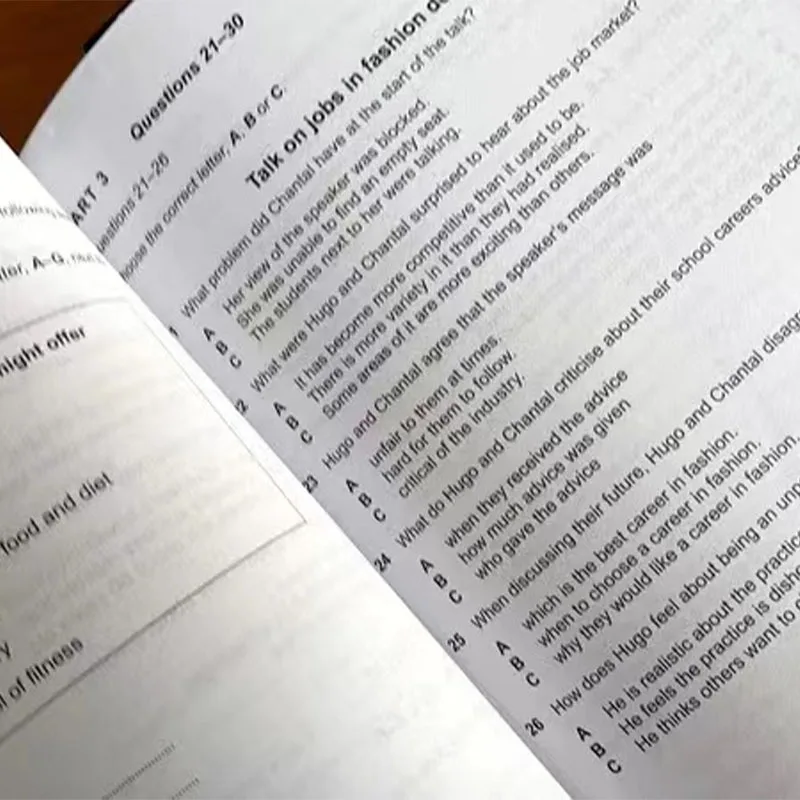 following
tter, A–G,
might offer
food and diet
of fitness
ART 3
Questions 21–30
uestions 21–26
oose the correct letter, A, B or C.
Talk on jobs in fashion
What problem did Chantal have at the start of the talk?
A Her view of the speaker was blocked.
B She was unable to find an empty seat.
C The students next to her were talking.
What were Hugo and Chantal surprised to hear about the job market?
A It has become more competitive than it used to be.
B There is more variety in it than they had realised.
C Some areas of it are more exciting than others.
23 Hugo and Chantal agree that the speaker's message was
A unfair to them at times.
B hard for them to follow.
C critical of the industry.
24 What do Hugo and Chantal criticise about their school careers advice?
A when they received the advice
B how much advice was given
C who gave the advice
25 When discussing their future, Hugo and Chantal
A which is the best career in fashion.
B when to choose a career in fashion.
C why they would like a career in fashion.
26 How does Hugo feel about being an
A He is realistic about the
B He feels the practice is
C He thinks others want to